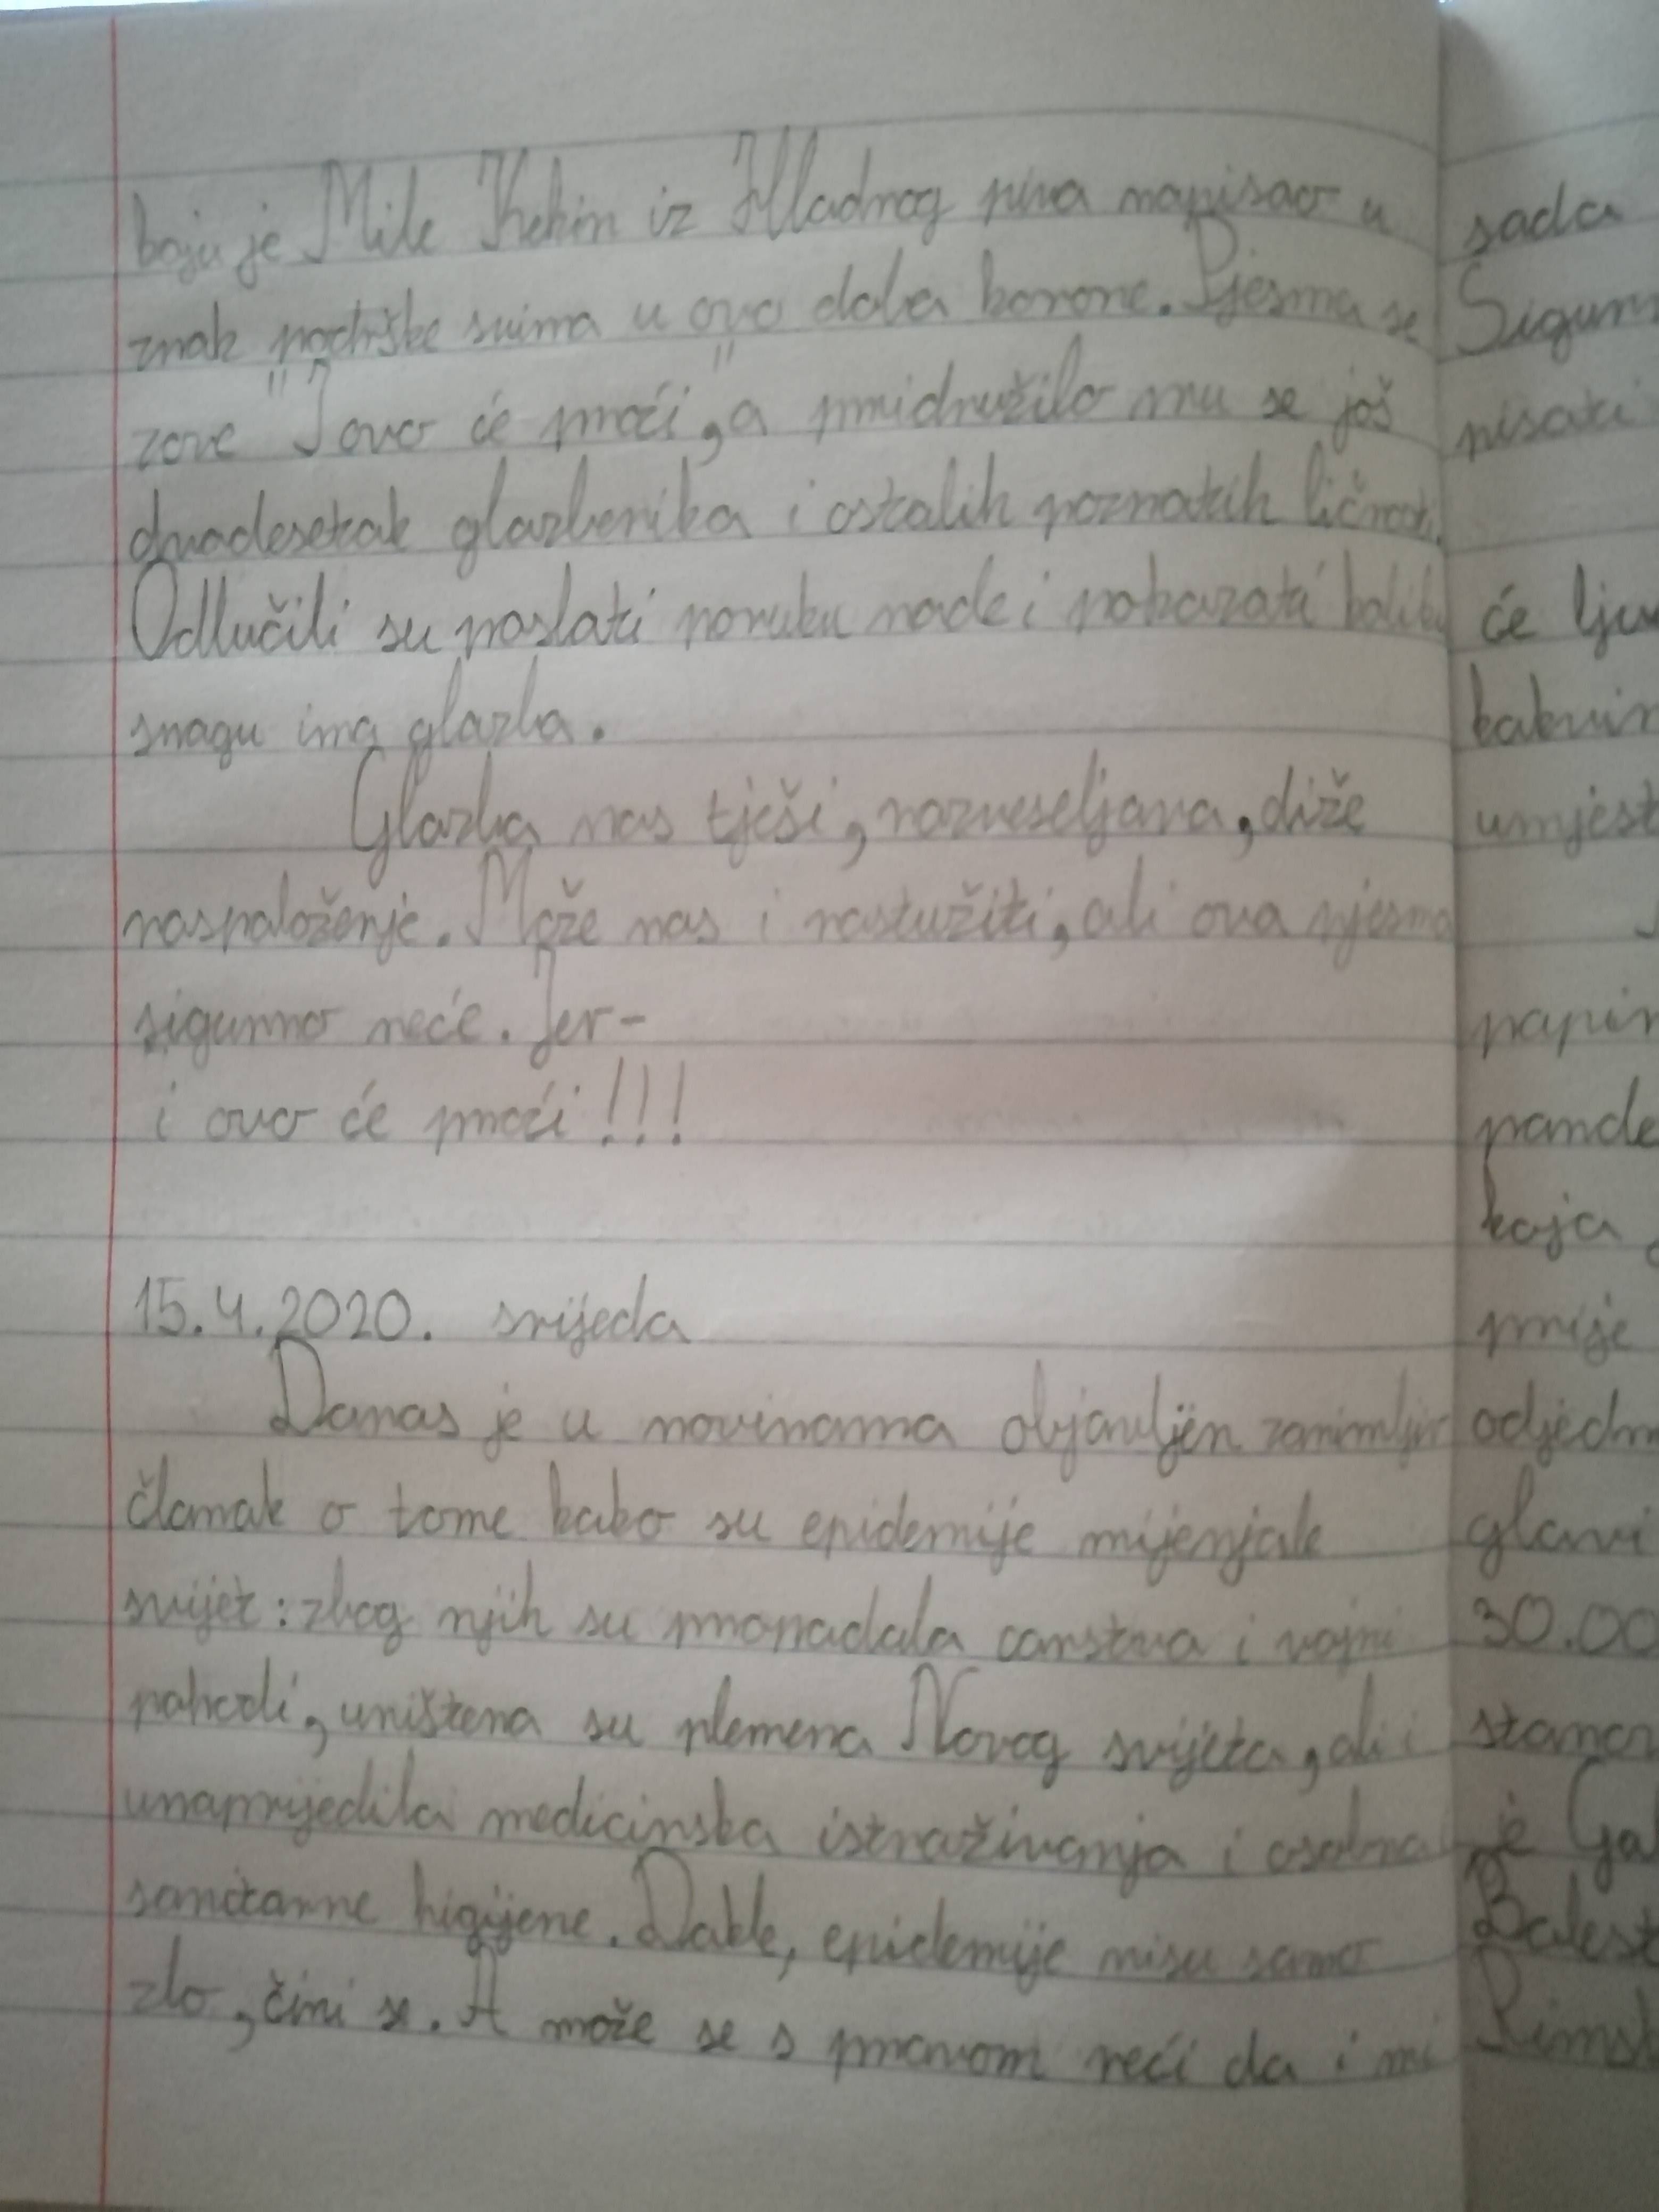 koju je Mile Kekin iz Hladnog piva napisao u
znak podrške svima u ovo doba korone. Pjesma se
zove "I ovo će proći", a pridružilo mu se još
dvadesetak glazbenika i ostalih poznatih ličnosti.
Odlučili su poslati poruku nade i pokazati koliku
snagu ima glazba.
Glazba nas tješi, razveseljava, diže
raspoloženje. Može nas i rastužiti, ali ova pjesma
sigurno neće. Jer-
i ovo će proći!!!
15.4.2020. srijeda
Danas je u novinama objavljen zanimljiv
članak o tome kako su epidemije mijenjale
svijet: zbog njih su propadala carstva i vojni
pohodi, uništena su plemena Novog svijeta, ali i
unaprijedila medicinska istraživanja i osobna
sanitarne higijene. Dakle, epidemije nisu samo
zlo, čini se. A može se s pravom reći da i mi
sada
Sigurn
pisati
će lju
kakvim
umjest
papir
pande
koja
prije
odjedn
glavi
30.00
stanov
je Gal
Balest
Rimsk